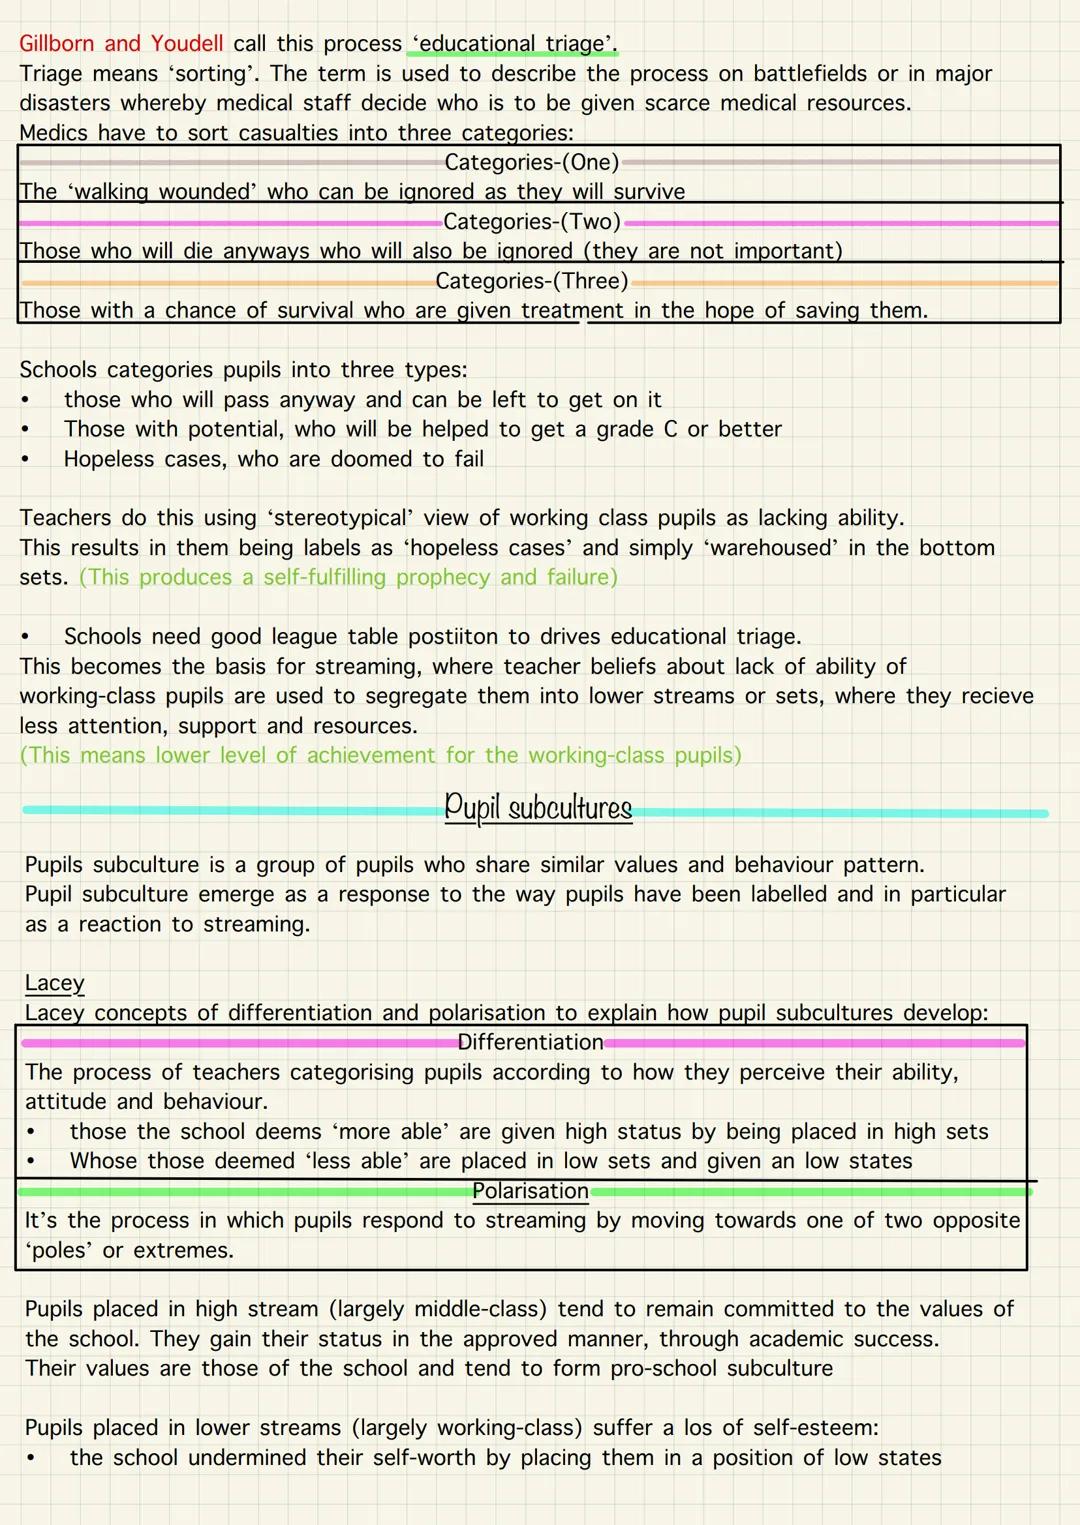 Gillborn and Youdell call this process ‘educational triage’.
Triage means ‘sorting’. The term is used to describe the process on battlefields or in major
disasters whereby medical staff decide who is to be given scarce medical resources.
Medics have to sort casualties into three categories:
Categories-(One)
The ‘walking wounded’ who can be ignored as they will survive
Categories-(Two)
Those who will die anyways who will also be ignored (they are not important)
Categories-(Three)
Those with a chance of survival who are given treatment in the hope of saving them.
Schools categories pupils into three types:
• those who will pass anyway and can be left to get on it
• Those with potential, who will be helped to get a grade C or better
• Hopeless cases, who are doomed to fail
Teachers do this using ‘stereotypical’ view of working class pupils as lacking ability.
This results in them being labels as ‘hopeless cases’ and simply ‘warehoused’ in the bottom
sets. (This produces a self-fulfilling prophecy and failure)
• Schools need good league table postiiton to drives educational triage.
This becomes the basis for streaming, where teacher beliefs about lack of ability of
working-class pupils are used to segregate them into lower streams or sets, where they recieve
less attention, support and resources.
(This means lower level of achievement for the working-class pupils)
Pupil subcultures
Pupils subculture is a group of pupils who share similar values and behaviour pattern.
Pupil subculture emerge as a response to the way pupils have been labelled and in particular
as a reaction to streaming.
Lacey
Lacey concepts of differentiation and polarisation to explain how pupil subcultures develop:
Differentiation
The process of teachers categorising pupils according to how they perceive their ability,
attitude and behaviour.
• those the school deems ‘more able’ are given high status by being placed in high sets
• Whose those deemed ‘less able’ are placed in low sets and given an low states
Polarisation
It’s the process in which pupils respond to streaming by moving towards one of two opposite
‘poles’ or extremes.
Pupils placed in high stream (largely middle-class) tend to remain committed to the values of
the school. They gain their status in the approved manner, through academic success.
Their values are those of the school and tend to form pro-school subculture
Pupils placed in lower streams (largely working-class) suffer a los of self-esteem:
• the school undermined their self-worth by placing them in a position of low states